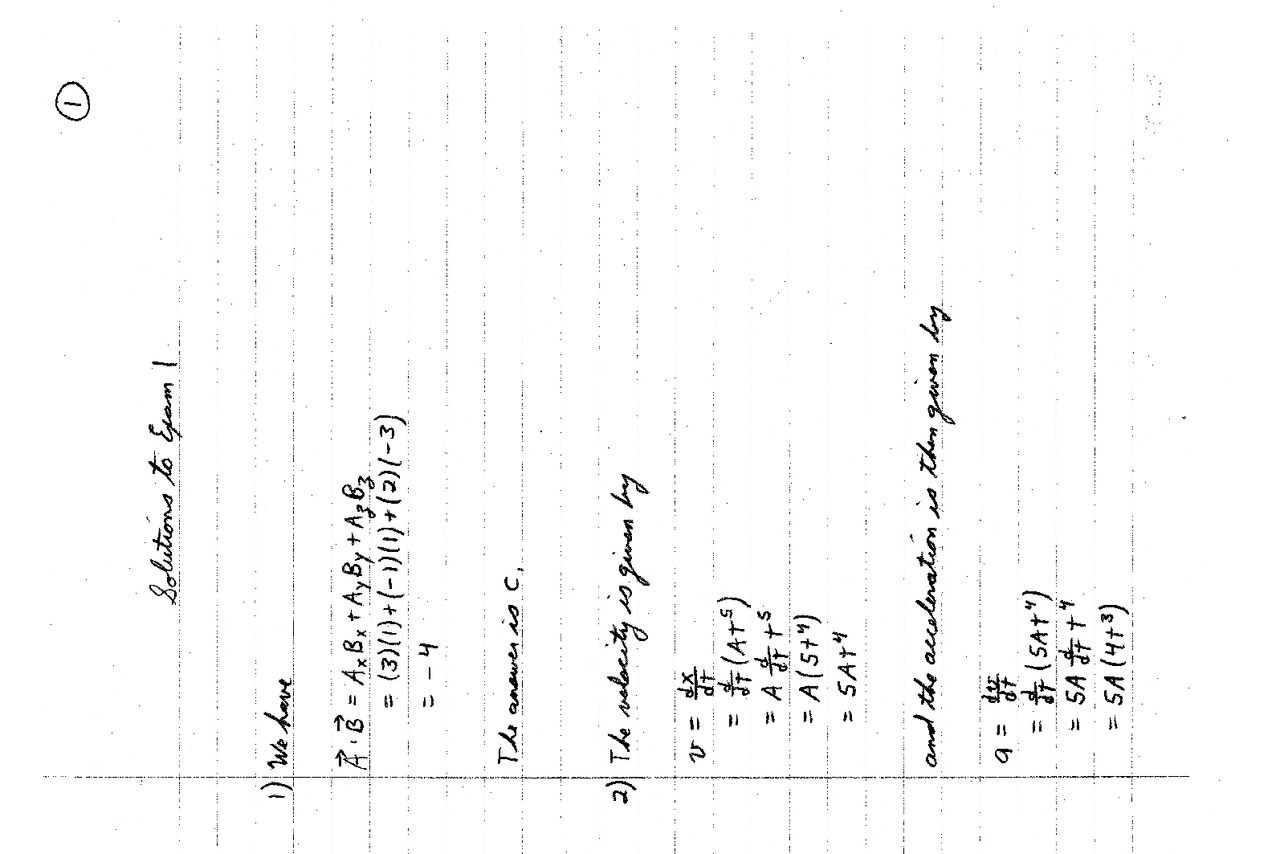 ①
Solutions to Exam 1
1) We have
A⃗ · B⃗ = AₓBₓ + A_yB_y + A_zB_z
= (3)(1)+(-1)(1)+(2)(-3)
= -4
The answer is C.
2) The velocity is given by
v = dx/dt
= d/dt (At⁵)
= A d/dt t⁵
= A(5t⁴)
= 5At⁴
and the acceleration is then given by
a = dv/dt
= d/dt (5At⁴)
= 5A d/dt t⁴
= 5A(4t³)